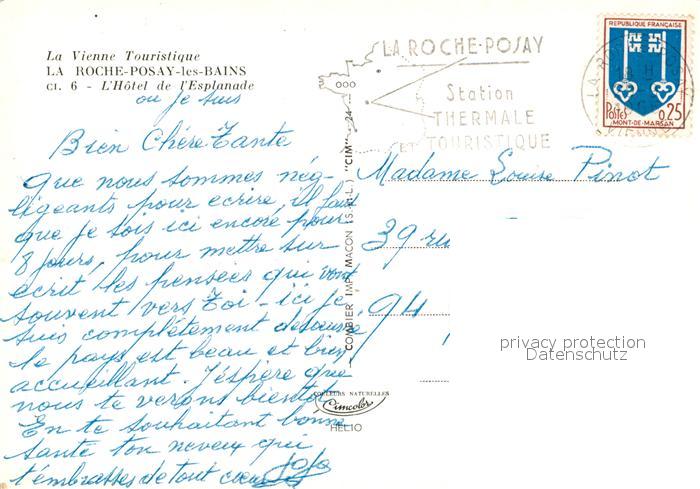 La Vienne Touristique
LA ROCHE-POSAY-les-BAINS
CI. 6 - L'Hôtel de l'Esplanade
ou je suis
Bien Chère Tante
que nous sommes nég-
ligeants pour ecrire, il faut
que je sois ici encore pour
8 jours, pour mettre sur
ecrit les pensées qui vont
souvent vers Toi - ici je
suis complètement
le pays est beau et bien
accueillant. J'éspère que
nous te verons bientot
En te souhaitant bonne
santé ton neveux qui
t'embrasses de tout coeur
Jojo
COMBIER IMP. MACON (S.-&-L.) "CIM"
COULEURS NATURELLES
Cimcolor
HELIO
LA ROCHE-POSAY
Station
THERMALE
ET TOURISTIQUE
REPUBLIQUE FRANÇAISE
Postes 0,25
MONT-DE-MARSAN
Madame Louise Pinot
39 ru
94
privacy protection
Datenschutz